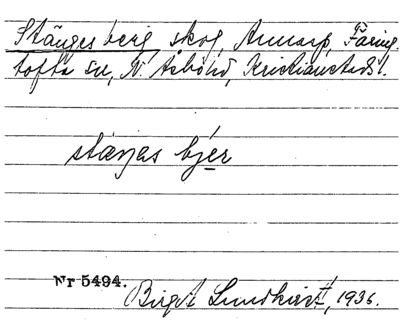 Stänges berg skog, Annarp, Färing
tofta sn, N. Åsbo hd, Kristianstads l.
stäŋas bjér
Nr 5494.
Birgit Lundkvist, 1936.